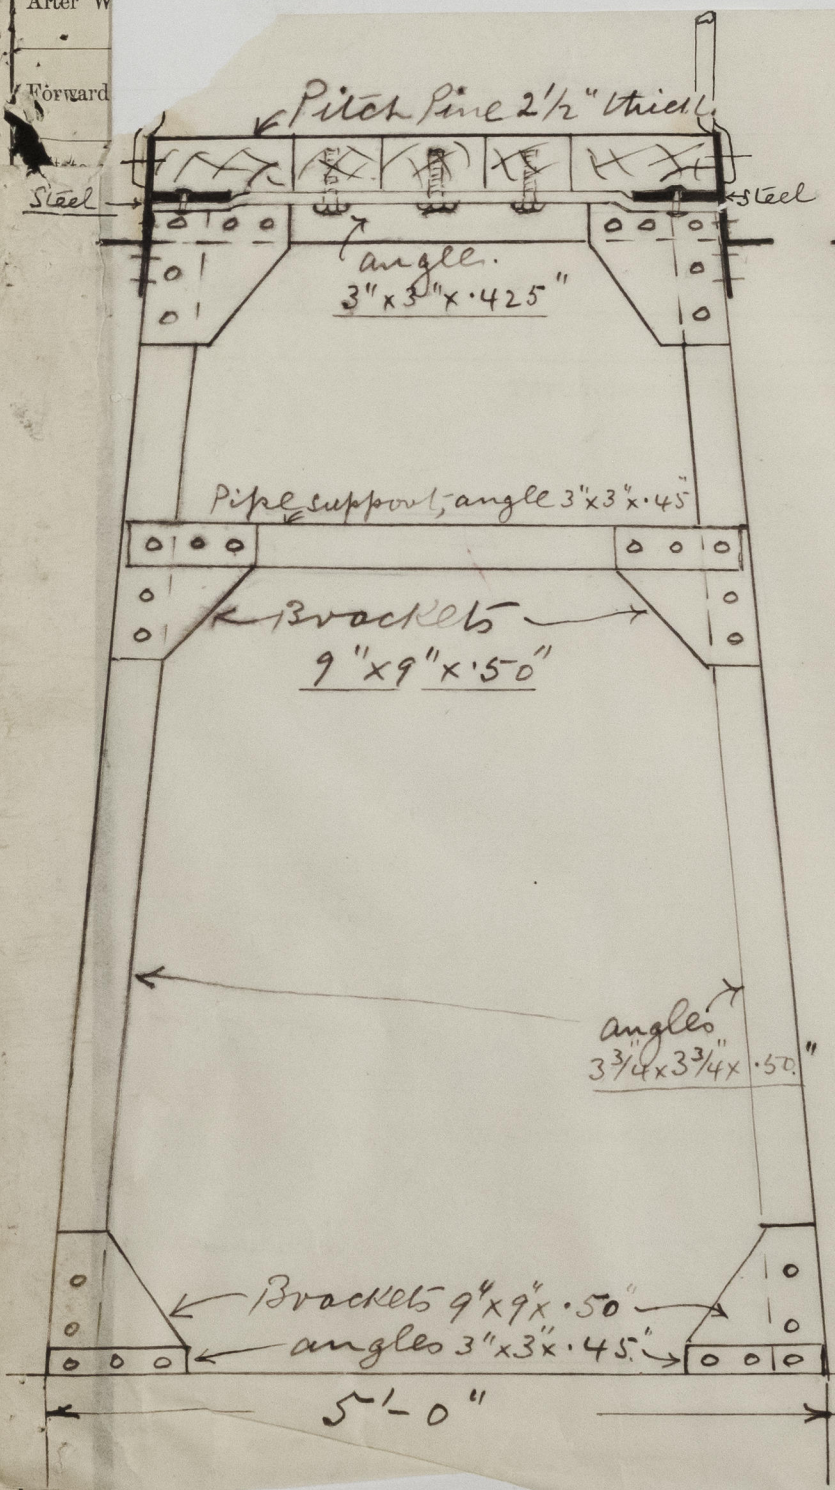 After W
Forward
Pitch Pine 2½" thick.
Steel
steel
angle.
3"x3"x·425"
Pipe support, angle 3"x3"x·45"
Brackets
9"x9"x·50"
angles
3¾"x3¾"x·50."
Brackets 9"x9"x·50"
angles 3"x3"x·45."
5'-0"